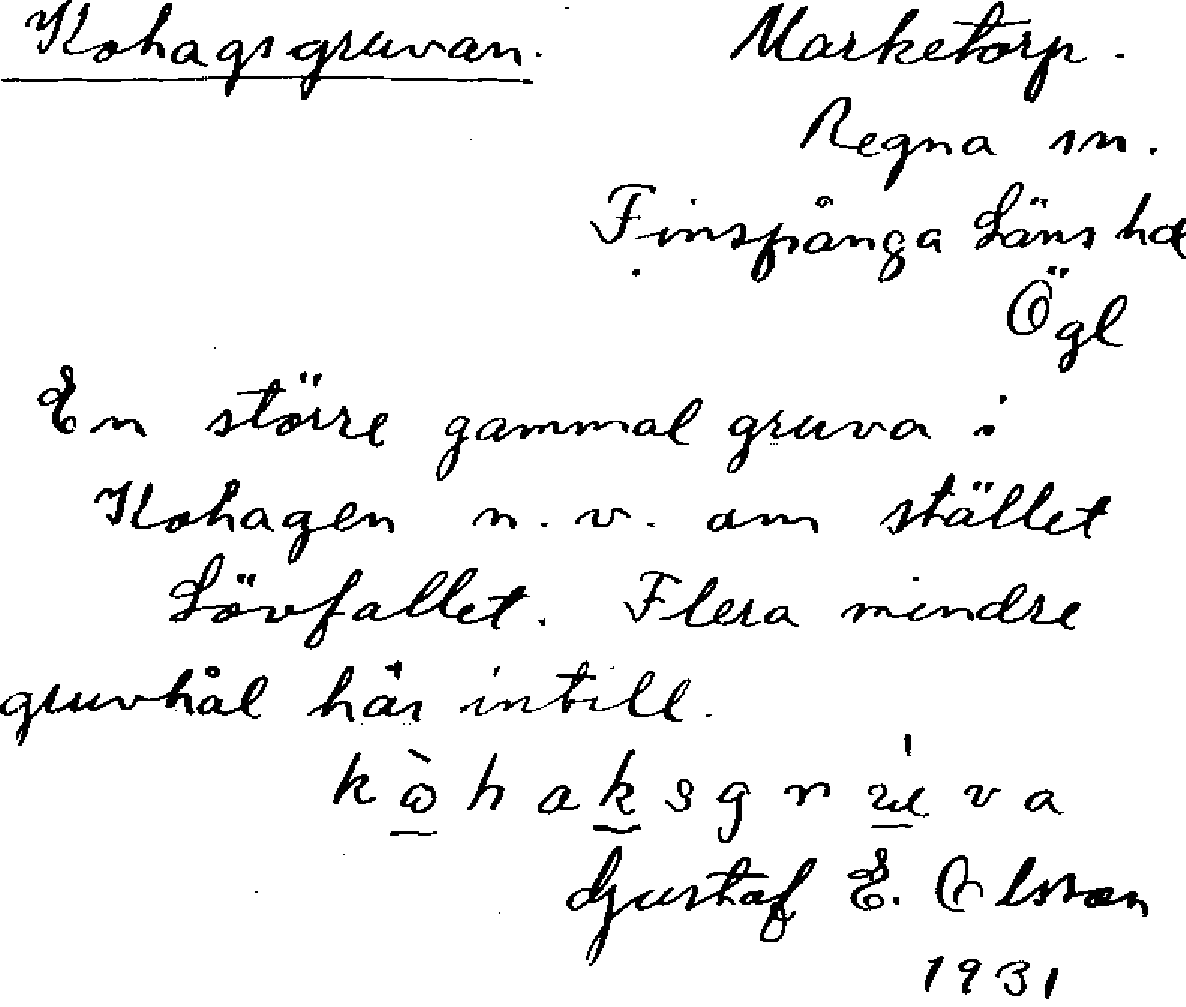 Kohagsgruvan. Marketorp.
Regna sn.
Finspånga Läns hd
Ögl
En större gammal gruva i
Kohagen n.v. om stället
Lövfallet. Flera mindre
gruvhål här intill.
kὼhaksgrúva
Gustaf E. Olsson
1931